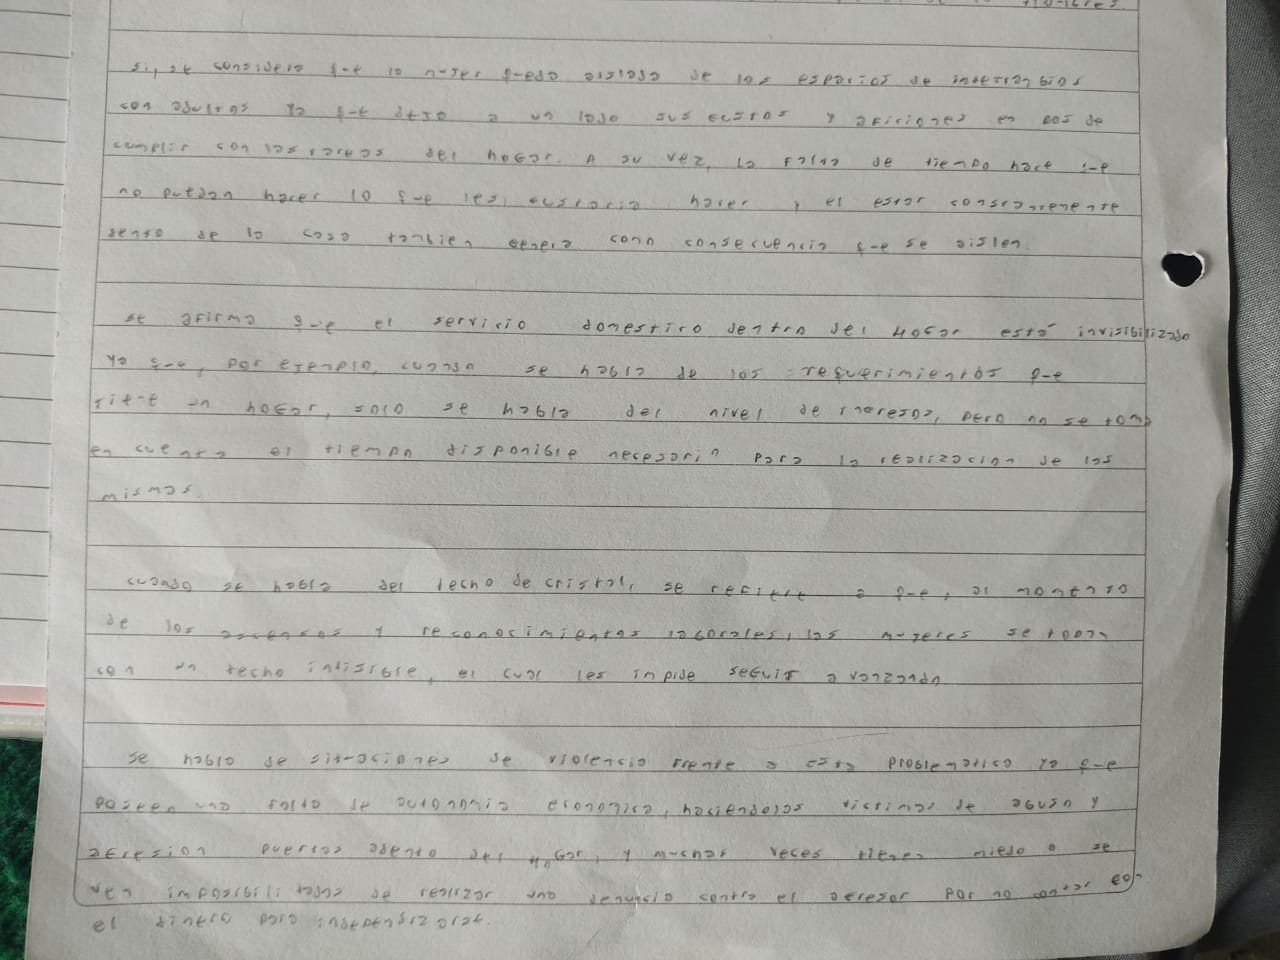 si, se considera que la mujer quedo aislada de los espacios de intercanbios
con adultos ya que dejo a un lado sus gustos y aficiones en pos de
cumplir con las tareas del hogar. A su vez, la falta de tiempo hace que
no puedan hacer lo que les gustaria hacer, y el estar constantemente
dento de la casa tanbien genera como consecuencia que se aislen.
se afirma que el servicio domestico dentro del Hogar está invisibilizado
ya que, por ejemplo, cuando se habla de los requerimientos que
tiene un hogar, solo se habla del nivel de ingresos, pero no se toma
en cuenta el tiempo disponible necesario para la realizacion de las
mismas.
cuando se habla del techo de cristal, se refiere a que, al momento
de los ascensos y reconocimientos laborales, las mujeres se topan
con un techo invisible, el cual les inpide seguir avanzando
se hablo de situaciones de violencia frente a esta problematica ya que
poseen una falta de autonomia economica, haciendolas victimas de abuso y
agresion puertas adento del Hogar, y muchas veces tienen miedo o se
ven imposibilitadas de realizar una denuncia contra el agresor por no contar con
el dinero para independizarse.